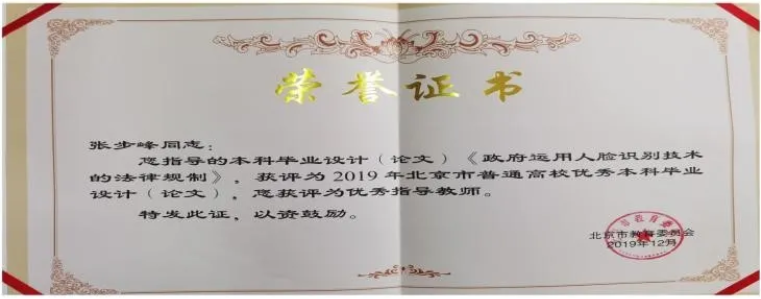 荣誉证书
张步峰同志：
您指导的本科毕业设计（论文）《政府运用人脸识别技术
的法律规制》，获评为2019年北京市普通高校优秀本科毕业
设计（论文），您获评为优秀指导教师。
特发此证，以资鼓励。
北京市教育委员会
2019年12月